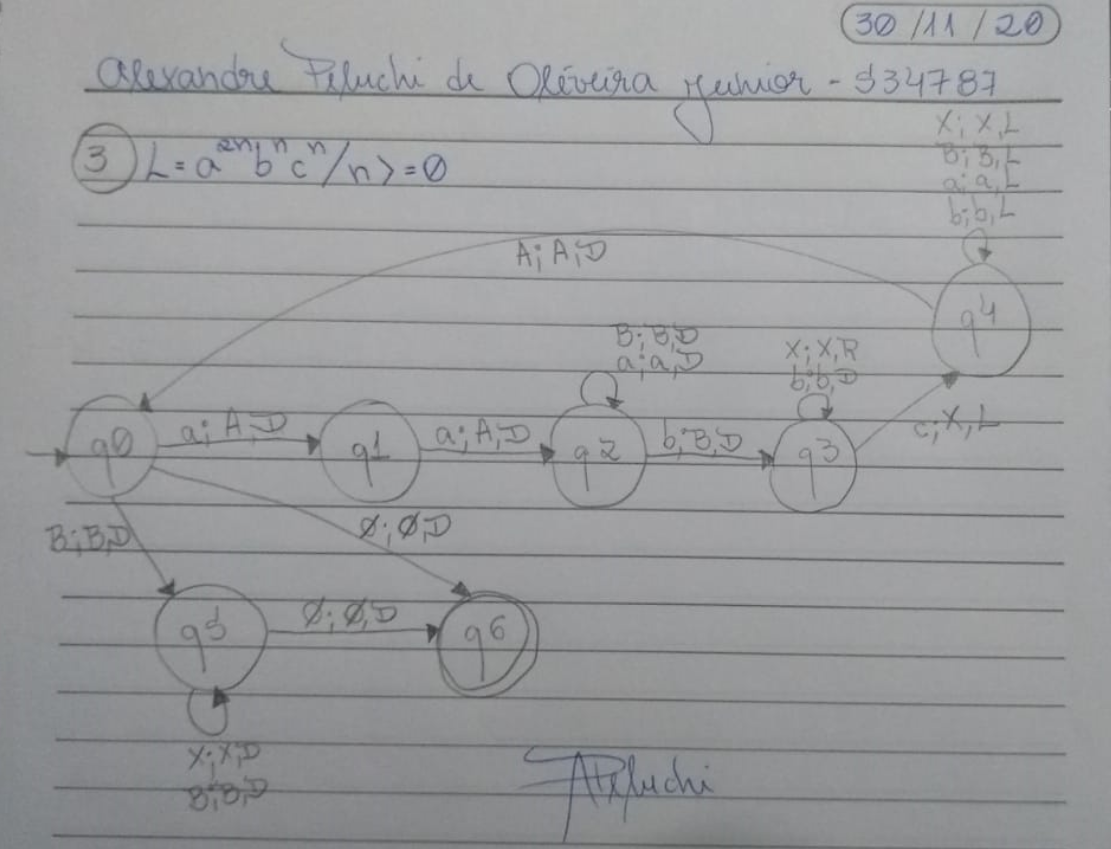 30/11/20
Alexandre Peluchi de Oliveira Junior - 534787
3 L = a^2n b^n c^n / n >= 0
X; X,L
B; B,L
a; a,L
b; b,L
A; A,D
q4
B; B,D
a; a,D
X; X,R
b; b,D
q0
a; A,D
q1
a; A,D
q2
b; B,D
q3
c; X, L
B; B,D
Ø; Ø,D
q5
Ø; Ø,D
q6
X; X,D
B; B,D
APeluchi